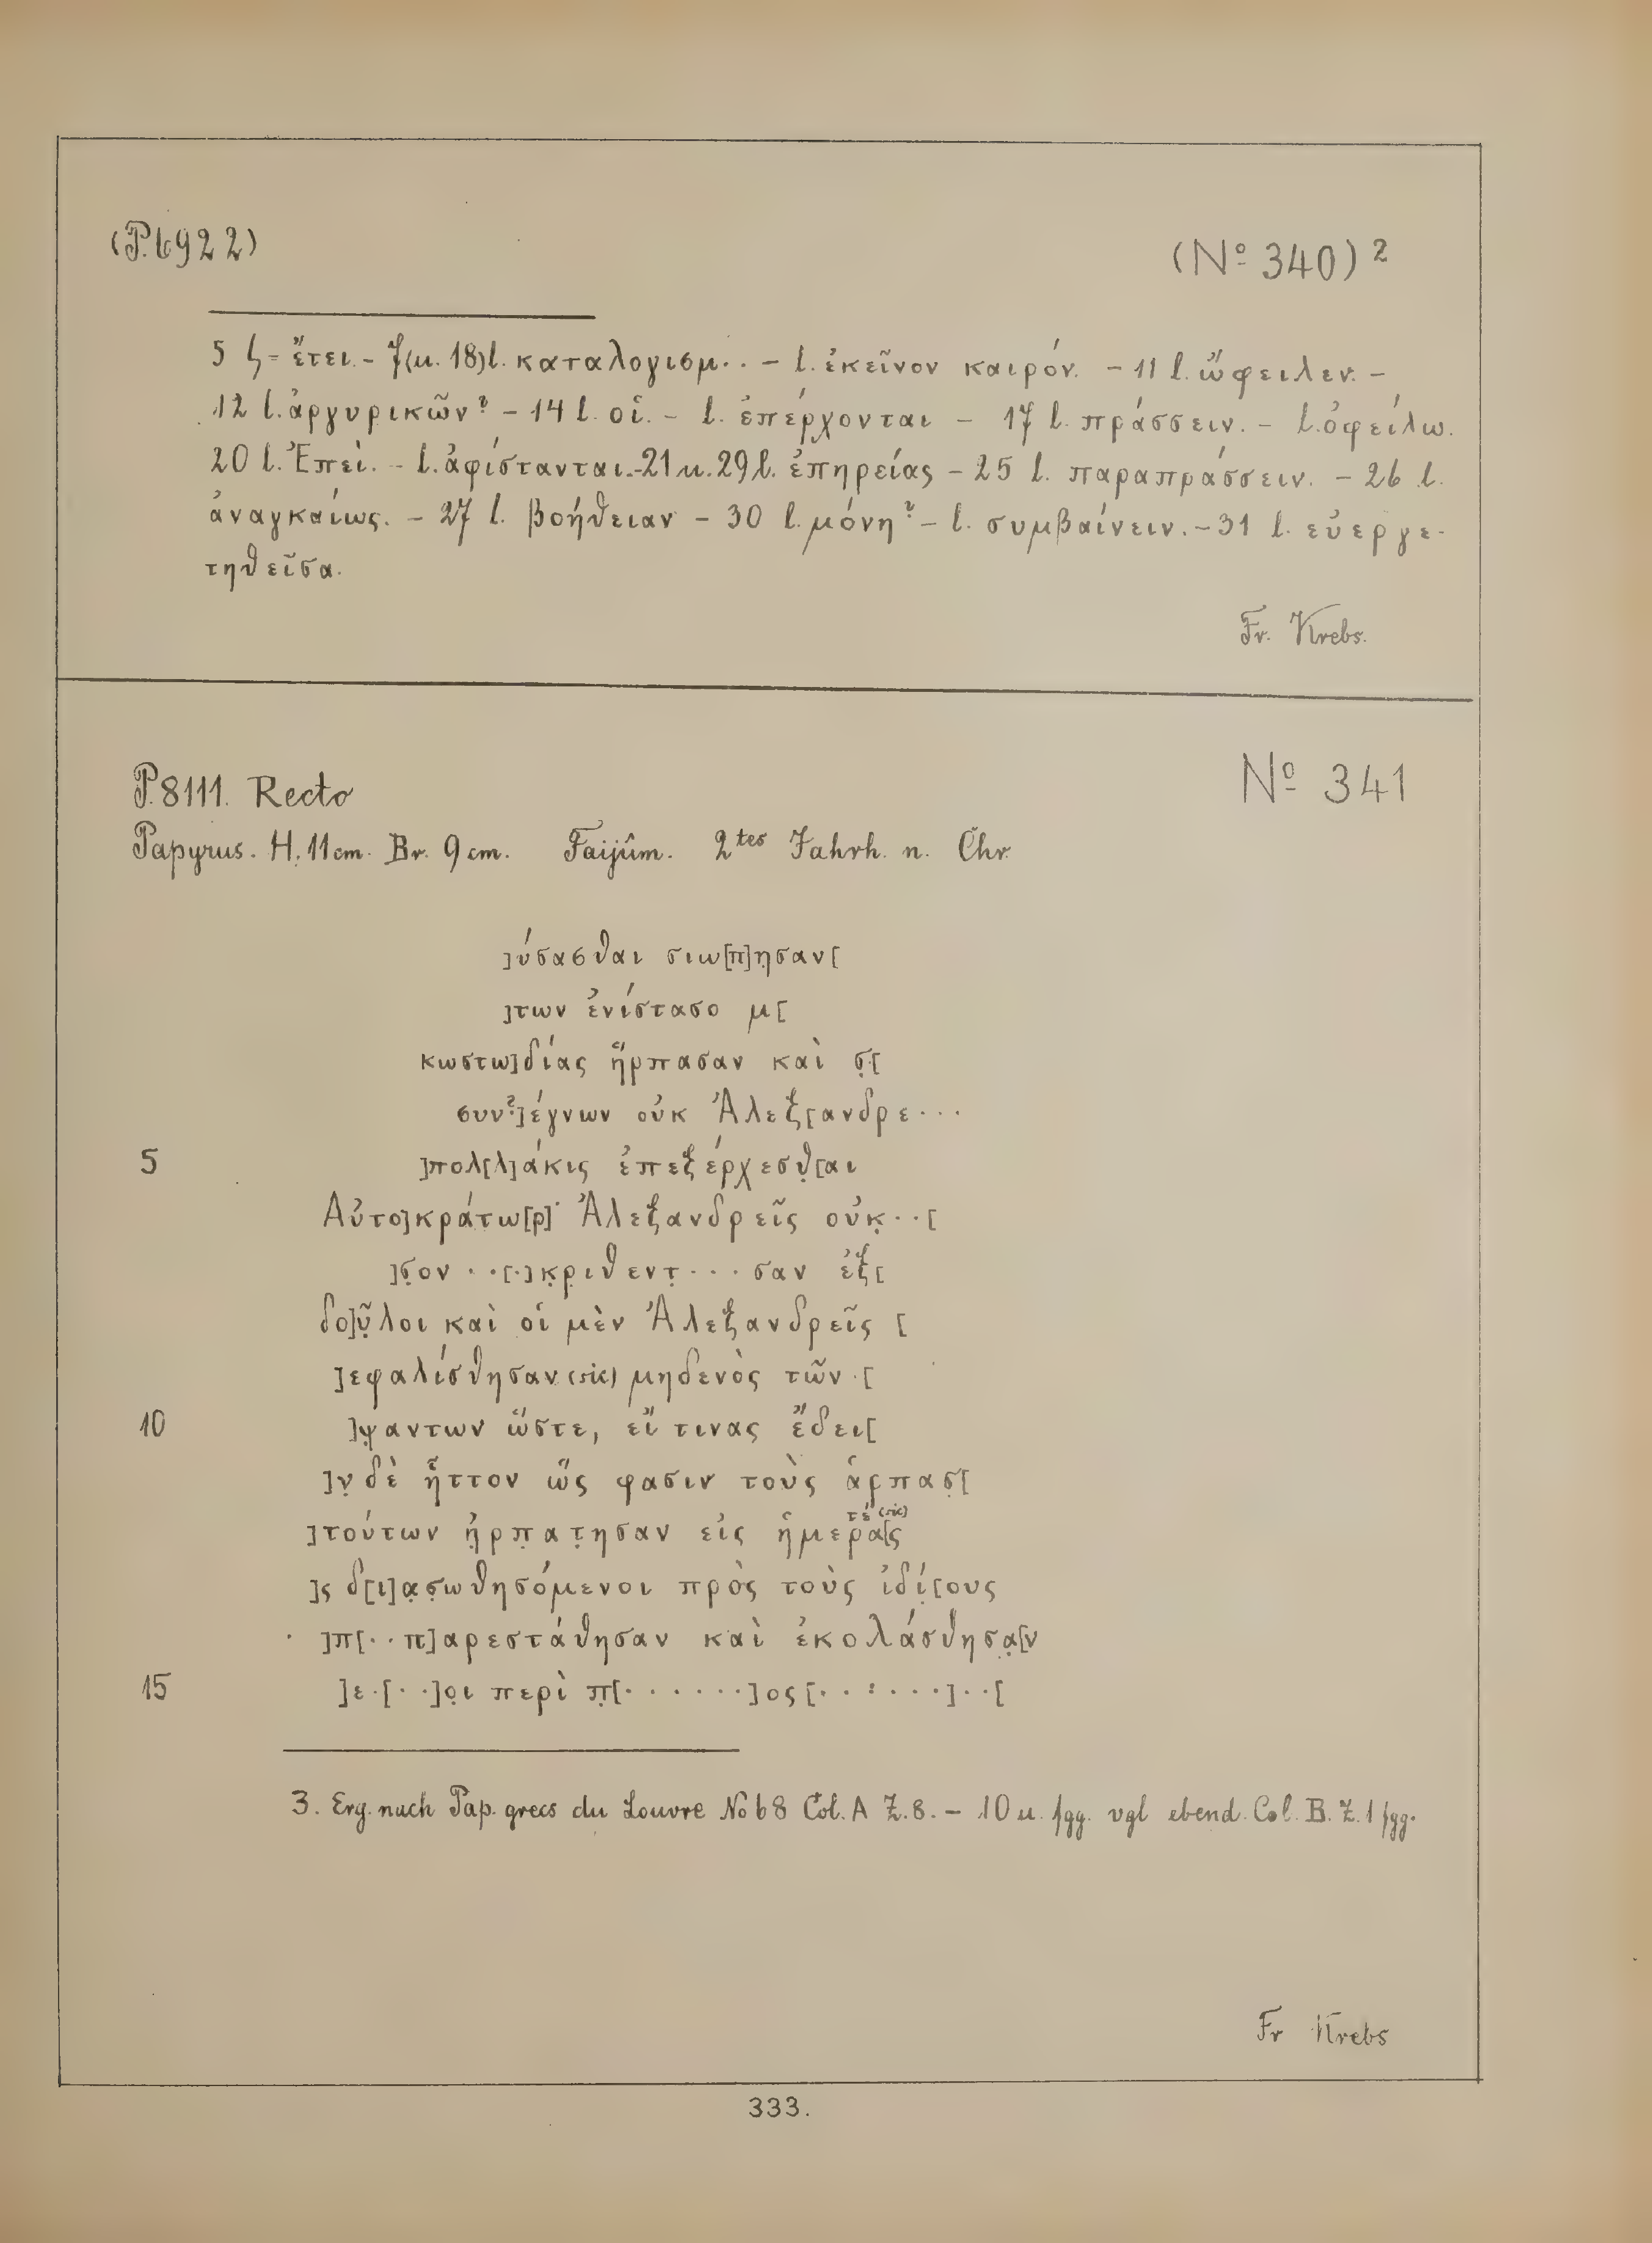 (P. 6922)
(Nº 340) ²
5 ϛ = ἔτει. – 7 (u. 18) l. καταλογισμ.. – l. ἐκεῖνον καιρόν. – 11 l. ὤφειλεν. –
12 l. ἀργυρικῶν? – 14 l. οἱ. – l. ἐπέρχονται – 17 l. πράσσειν. – l. ὀφείλω.
20 l. Ἐπεὶ. – l. ἀφίστανται. – 21 u. 29 l. ἐπηρείας – 25 l. παραπράσσειν. – 26 l.
ἀναγκαίως. – 27 l. βοήθειαν – 30 l. μόνη? – l. συμβαίνειν. – 31 l. εὐεργε-
τηθεῖσα.
Fr. Krebs.
P. 8111. Recto
Nº 341
Papyrus. H. 11 cm. Br. 9 cm. Faijûm. 2tes Jahrh. n. Chr.
]ύσασθαι σιω[π]ησαν[
]των ἐνίστασο μ[
κωστω]δίας ἥρπασαν καὶ σ̣[
συν?]έγνων οὐκ Ἀλεξ[ανδρε...
5 ]πολ[λ]άκις ἐπεξέρχεσθ̣[αι
Αὐτο]κράτω[ρ]· Ἀλεξανδρεῖς οὐκ̣..[
]σ̣ον ..[.]κ̣ρ̣ιθεντ̣...σαν ἐξ[
δο]ῦ̣λοι καὶ οἱ μὲν Ἀλεξανδρεῖς [
]εφαλίσθησαν (sic) μηδενὸς τῶν .[
10 ]ψ̣αντων ὥστε, εἴ τινας ἔδει[
]ν̣ δὲ ἧττον ὥς φασιν τοὺς ἁρπασ̣[
τέ (sic)
]τούτων ἡ̣ρπ̣ατ̣ησαν εἰς ἡμερα[ς
]ς δ[ι]α̣σ̣ωθησόμενοι πρὸς τοὺς ἰδί̣[ους
]π[..π]αρεστάθησαν καὶ ἐκολάσθησα̣[ν
15 ]ε.[..]ο̣ι περὶ π̣[.......]ος[.......]..[
3. Erg. nach Pap. grecs du Louvre No 68 Col. A Z. 8. – 10 u. fgg. vgl ebend. Col. B. Z. 1 fgg.
Fr Krebs
333.